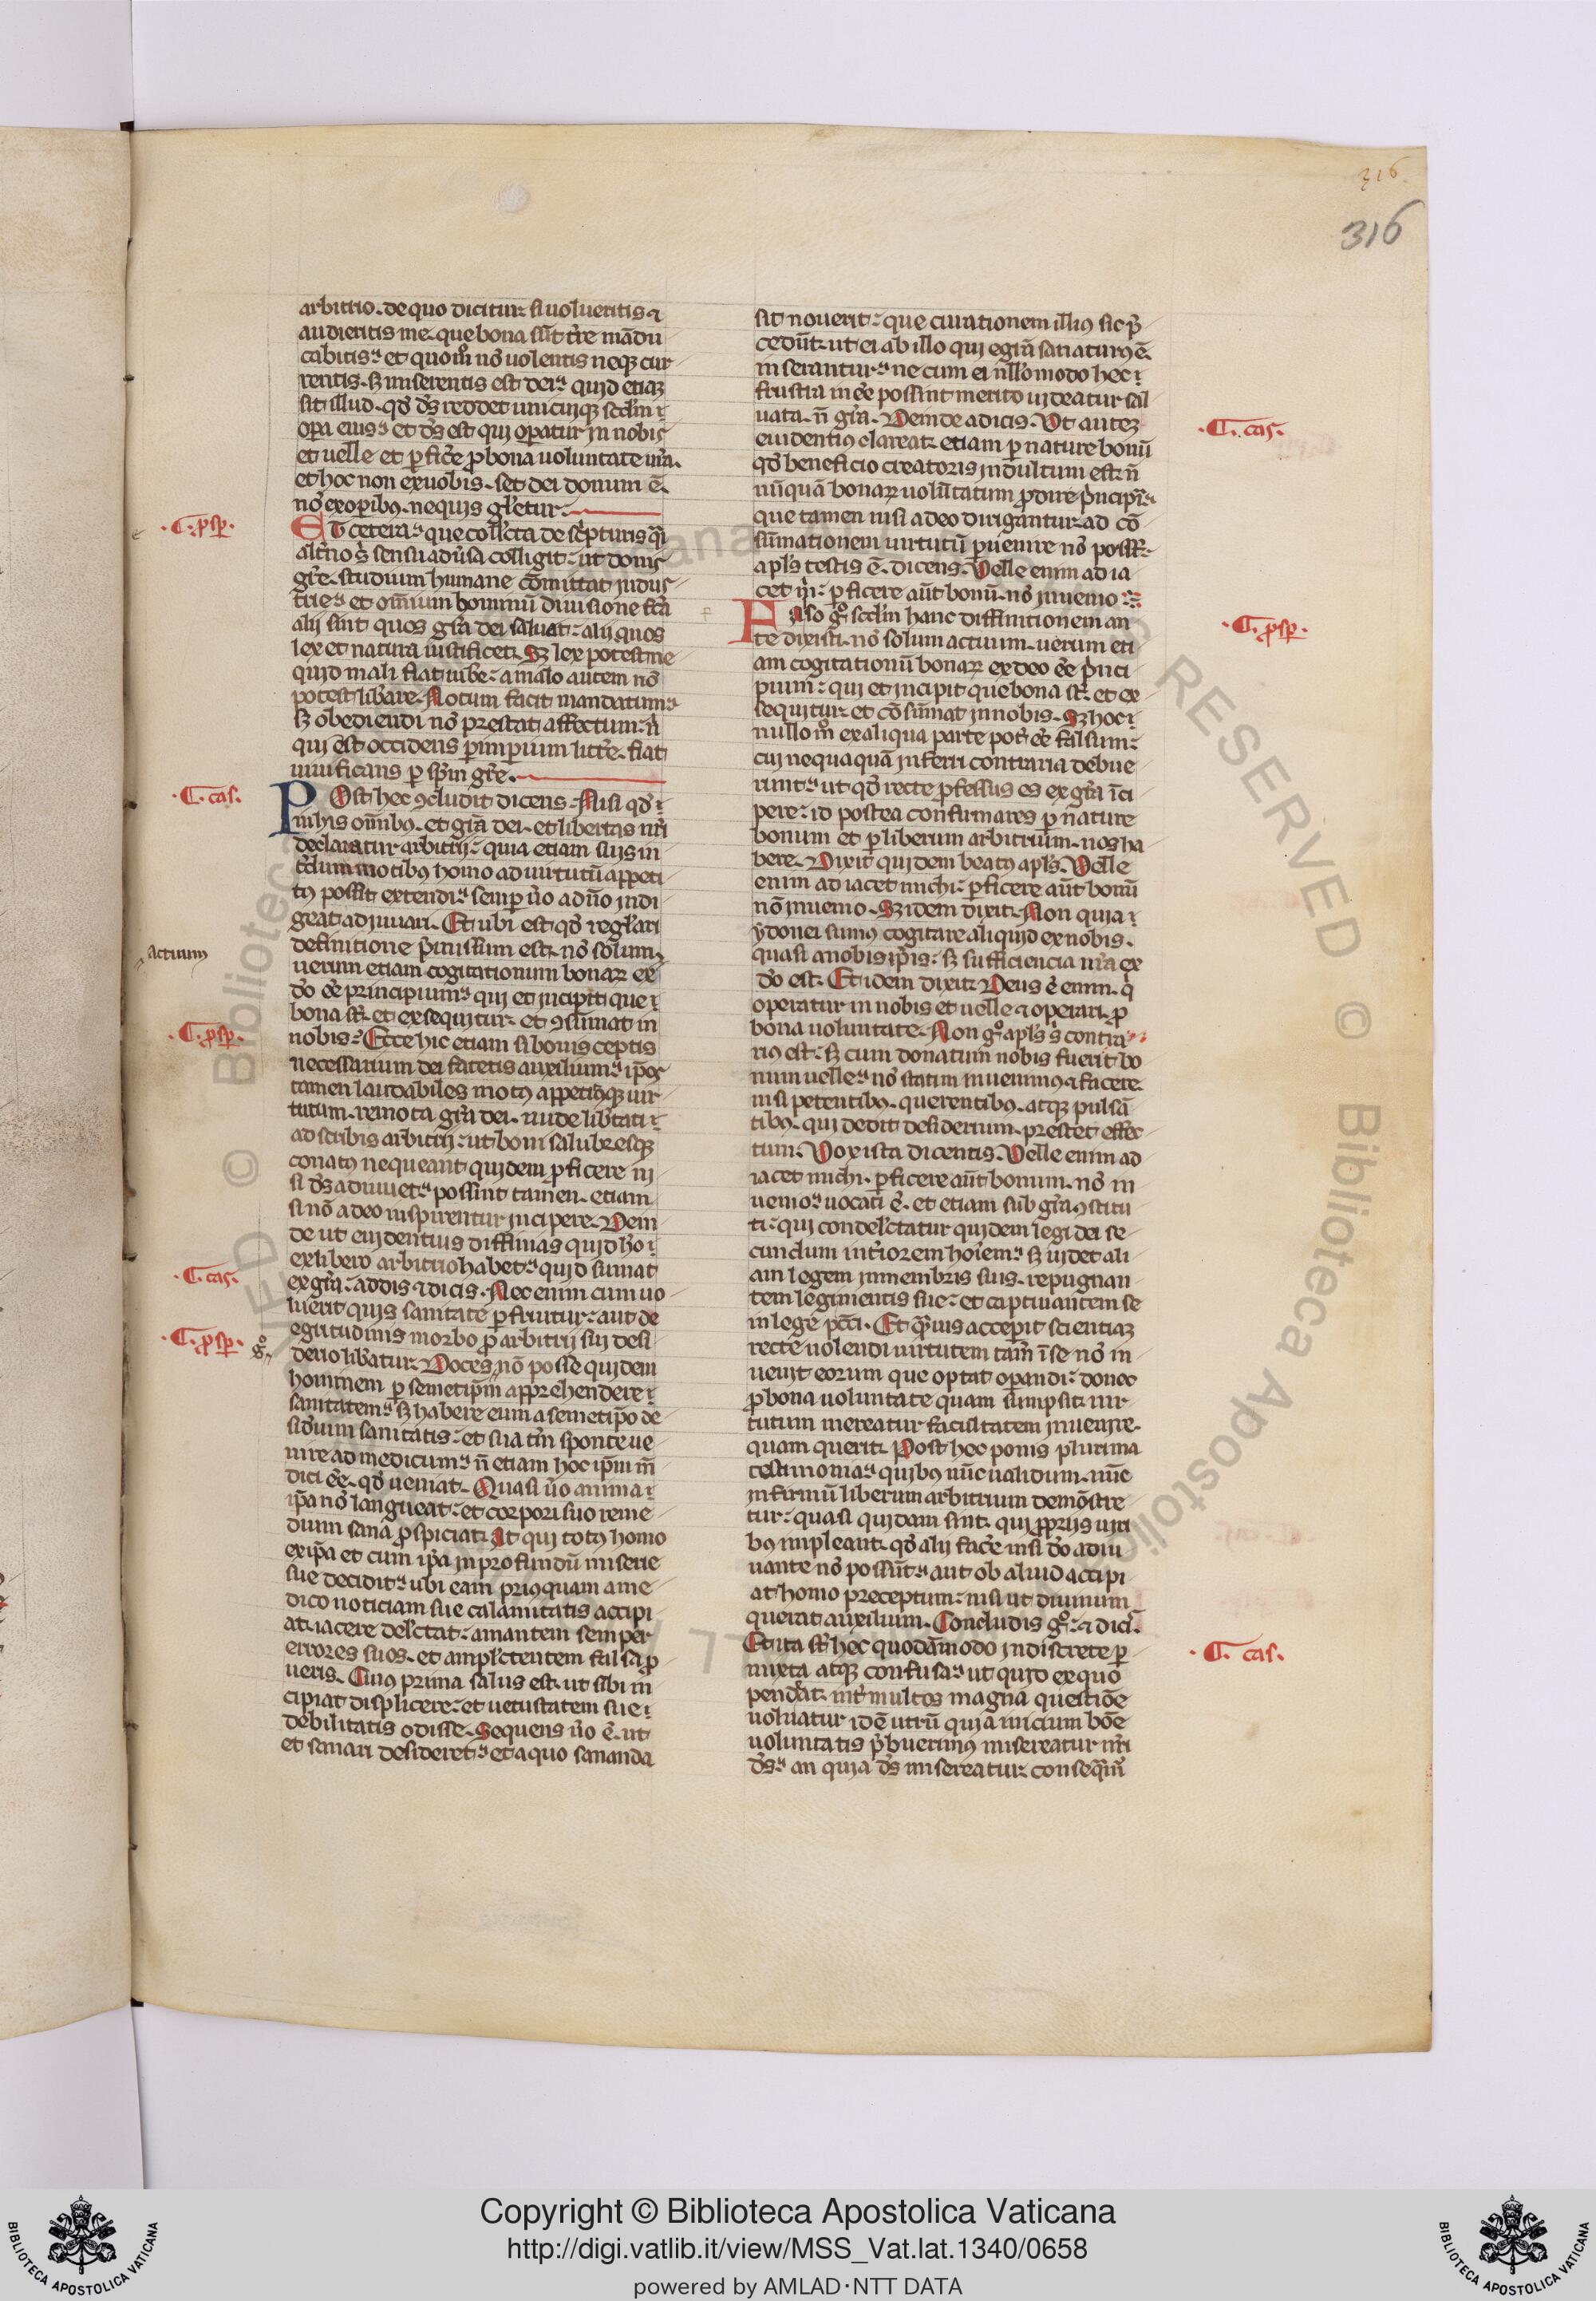 316
316
arbitrio. de quo dicitur si uolueritis ⁊
audieritis me. que bona sūt t̄re mādu
cabitis. et quōm nō uolentis neqꝫ cur
rentis. sꝫ miserentis est dei. quid etiaꝫ
sit illud. qđ dš reddet unicuiqꝫ sccl̄m
oꝑa eius. et dš est qui oꝑatur in nobis
et uelle et ꝑficẽ ꝓ bona uoluntate ur̄a.
et hoc non ex uobis. set dei donum ē.
nō ex oꝑibꝰ. ne quis gl̄etur.
·C. ꝓsꝑ.
ET cetera. que coll̄cta de sc̄pturis q̄si
alt̄no s' sensu adūsa colligit. ut donis
gr̄e. studium humane cōmittat indus
trie. et om̄ium hominū diuisione fc̄a
alij sint quos gr̄a dei saluat. alij quos
lex et natura iustificet. Sꝫ lex potest ne
quid mali fiat iube. a malo autem nō
potest lib̄are. Notum facit mandatum
sꝫ obediendi nō prestat affectum. n̄
qui est occidens ꝑ imperium litt̄e. fiat
uiuificans ꝑ sp̄m gr̄e.
·C. cas.
POst hec ꝯcludit dicens. Nisi qđ
in his om̄ibꝰ. et gr̄a dei. et libertas nr̄i
declaratur arbitrij. quia etiam suis in
t̄dum motibꝰ homo ad uirtutū appeti
tꝰ possit extendi. semꝑ ūo a dn̄o indi
geat adiuuari. Et ubi est qđ regl̄ari
definitione p̄missum est. nō solum
actuum
uerum etiam cogitationum bonaꝝ ex
dō eē principium. qui et incipit que
bona sūt. et exsequitur. et ꝯsūmat in
·C. ꝓsꝑ.
nobis. Ecce hic etiam si bonis ceptis
necessarium dei fatetis auxilium. ip̄os
tamen laudabiles motꝰ appetitꝰqꝫ uir
tutum. remota gr̄a dei. nude lib̄tati
adscribis arbitrij. ut boni salubresqꝫ
conatꝰ nequeant quidem ꝓficere ni
si dš adiuuet. possint tamen. etiam
si nō a deo inspirentur incipere. Dein
de ut euidentius diffinias quid hō
ex libero arbitrio habet. quid sumat
·C. cas.
ex gr̄a. addis ⁊ dicis. Nec enim cum uo
luerit quis sanitate ꝑfruitur. aut de
·C. ꝓsꝑ.
egritudinis morbo ꝓ arbitrij sui desi
derio lib̄atur. Doces gº nō posse quidem
hominem ꝑ semetip̄m apprehendere
sanitatem. sꝫ habere eum a semetip̄o de
siđium sanitatis. et sua tm̄ sponte ue
nire ad medicum. n̄ etiam hoc ip̄m m̄
dici eē. qđ ueniat. Quasi ūo anima
ip̄a nō langueat. et corpori suo reme
dium sana ꝓspiciat. At qui totꝰ homo
ex ip̄a et cum ip̄a in profundū miserie
sue decidit. ubi eam priꝰquam a me
dico noticiam sue calamitatis accipi
at. iacere del̄ctat. amantem semper
errores suos. et ampl̄ctentem falsa ꝓ
ueris. Cuiꝰ prima salus est. ut sibi in
cipiat displicere. et uetustatem sue
debilitatis odisse. Sequens ūo ē. ut
et sanari desideret. et a quo sananda
sit nouerit. que curationem illiꝰ sic p̄
cedūt. ut ei ab illo qui egrā sanaturꝰ ē.
inserantur. ne cum ei nll̄o modo hec
frustra inēe possint merito uideatur sal
uata. n̄ gr̄a. Deinde adicis. Ut auteꝫ
·C. cas.
euidentiꝰ clareat. etiam ꝑ nature bonū
qđ beneficio creatoris indultum est. n̄
nūquā bonaꝝ uolūtatum ꝓdire p̄ncipia.
que tamen nisi a deo dirigantur. ad cō
sūmationem uirtutū ꝑuenire nō possūt.
apl̄s testis ē. dicens. Uelle enim adia
cet m̄. ꝑficere aūt bonū. nō inuenio.
·C. ꝓsꝑ.
FAlso gº sccl̄m hanc diffinitionem an
te dixisti. nō solum actuum. uerum eti
am cogitationū bonaꝝ ex deo eē p̄nci
pium. qui et incipit que bona sūt. et ex
sequitur. et cōsūmat in nobis. Sꝫ hoc
nullo mº ex aliqua parte pot̄ eē falsum.
cui nequaquā inferri contraria debue
runt. ut qđ recte ꝓfessus es ex gr̄a īci
pere. id postea confirmares ꝑ nature
bonum et ꝑ liberum arbitrium. nos ha
bere. Dixit quidem beatꝰ apl̄s. Uelle
enim adiacet michi. ꝑficere aūt bonū
nō inuenio. Sꝫ idem dixit. Non quia
ydonei sumꝰ cogitare aliquid ex nobis.
quasi a nobis ip̄is. sꝫ sufficiencia nr̄a ex
dō est. Et idem dixit. Deus ē enim. q̄
operatur in nobis et uelle ⁊ operari. ꝓ
bona uoluntate. Non gº apl̄s s' contra
riꝰ est. sꝫ cum donatum nobis fuerit bo
num uelle. nō statim inuenimꝰ ⁊ facere.
nisi petentibꝰ. querentibꝰ. atqꝫ pulsā
tibꝰ. qui dedit desiderium. prestet effec
tum. Vox ista dicentis. Uelle enim ad
iacet michi. ꝑficere aūt bonum. nō in
uenio. uocati ē. et etiam sub gr̄a ꝯstitu
ti. qui condel̄ctatur quidem legi dei se
cundum int̄iorem hoīem. sꝫ uidet ali
am legem in membris suis. repugnan
tem legi mentis sue. et captiuantem se
in lege pcc̄i. Et q̄muis accepit scientiaꝫ
recte uolendi. uirtutem tam̄ ī se nō in
uenit eorum que optat oꝑandi. donec
ꝓ bona uoluntate quam sumpsit. uir
tutum mereatur facultatem inuenire.
quam querit. Post hec ponis plurima
testimonia. quibꝰ nūc ualidum. nūc
infirmū liberum arbitrium demōstre
tur. quasi quidam sint. qui ꝓprijs uiri
bꝰ impleant. qđ alij facẽ nisi dō adiu
uante nō possūt. aut ob aliud accipi
at homo preceptum. nisi ut diuinum
querat auxilium. Concludis gº. ⁊ dicis.
·C. cas.
Et ita sūt hec quodāmodo indiscrete ꝑ
mixta atqꝫ confusa. ut quid ex quo
pendeat. int̄ multos magna questiōe
uoluatur. id ē utrū quia inicium bōe
uoluntatis p̄buerimꝰ misereatur nr̄i
dš. an quia dš misereatur. conseq̄mur
Copyright © Biblioteca Apostolica Vaticana
http://digi.vatlib.it/view/MSS_Vat.lat.1340/0658
powered by AMLAD·NTT DATA
BIBLIOTECA APOSTOLICA VATICANA
BIBLIOTECA APOSTOLICA VATICANA